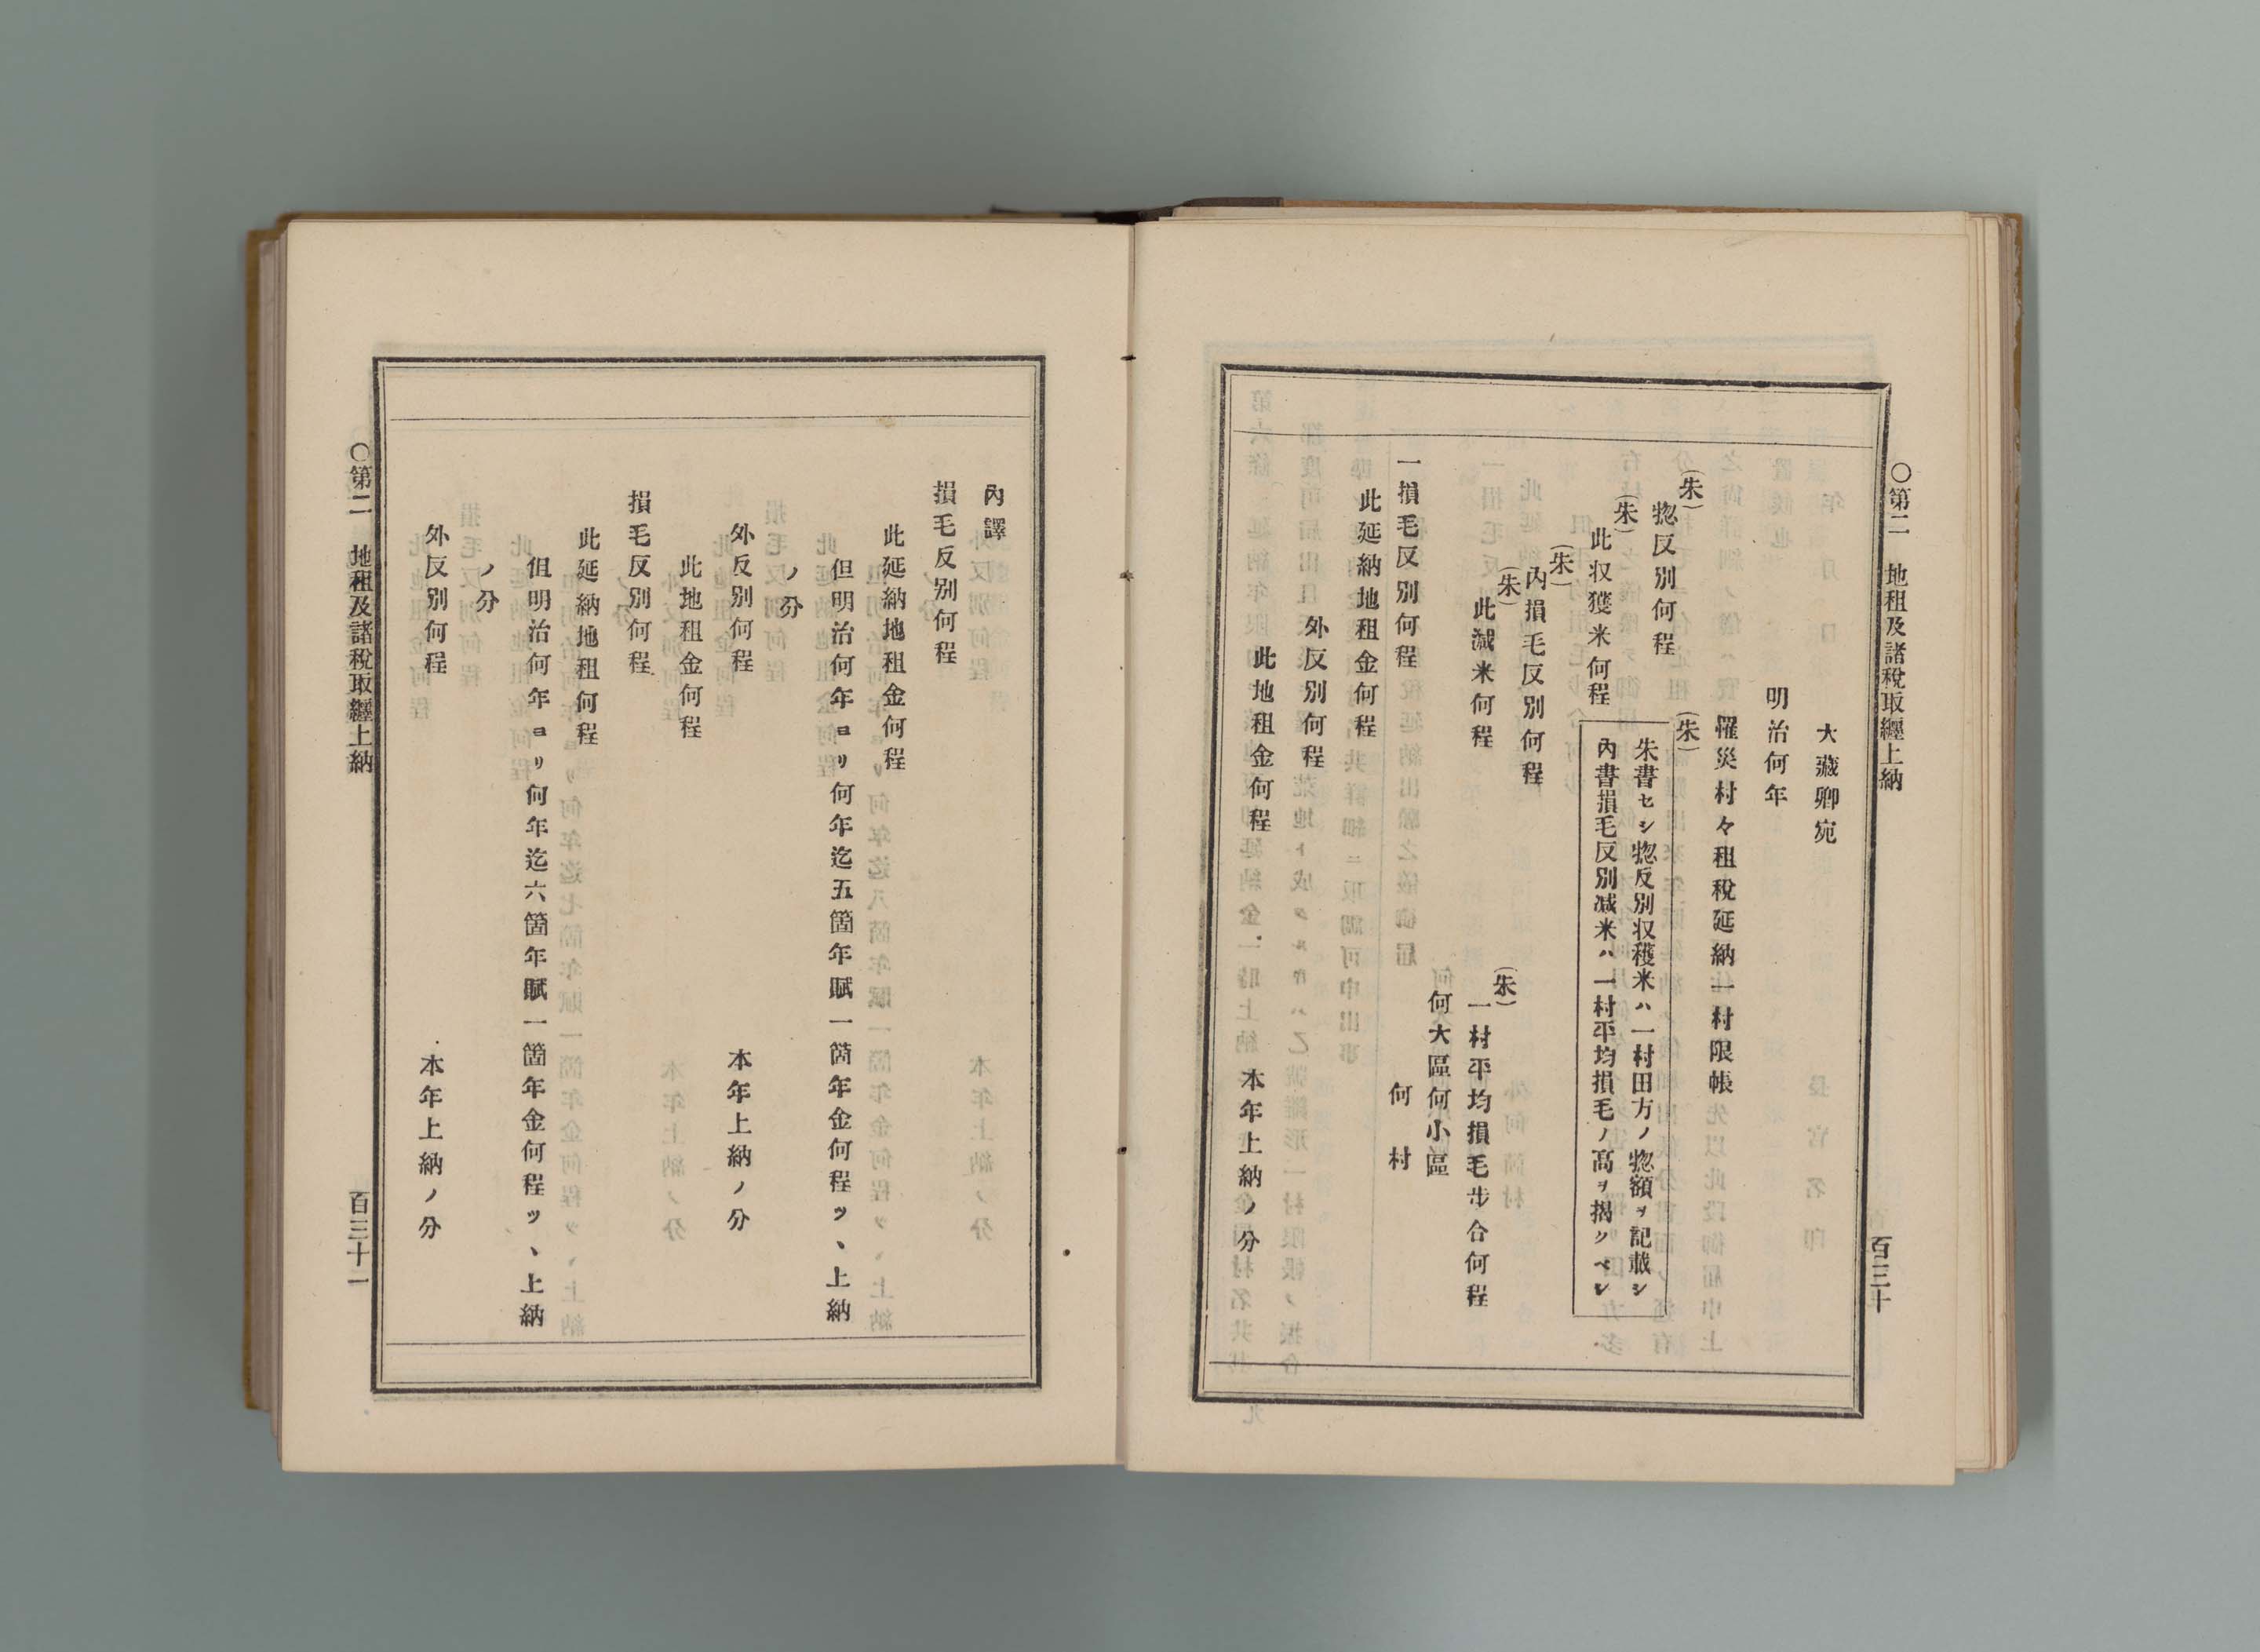 ○第二　地租及諸稅取纒上納
百三十
大藏卿宛
明治何年
罹災村々租稅延納一村限帳
(朱)
朱書セシ惣反別収穫米ハ一村田方ノ惣額ヲ記載シ
內書損毛反別减米ハ一村平均損毛ノ高ヲ揭クベシ
(朱)
惣反別何程
(朱)
此収獲米何程
(朱)
內損毛反別何程
(朱)
此減米何程
(朱)
一村平均損毛步合何程
何大區何小區
何村
一損毛反別何程
此延納地租金何程
外反別何程
此地租金何程
本年上納ノ分
內譯
損毛反別何程
此延納地租金何程
但明治何年ヨリ何年迄五箇年賦一箇年金何程ツヽ上納
ノ分
外反別何程
本年上納ノ分
此地租金何程
損毛反別何程
此延納地租何程
但明治何年ヨリ何年迄六箇年賦一箇年金何程ツヽ上納
ノ分
外反別何程
本年上納ノ分
○第二　地租及諸稅取纒上納
百三十一